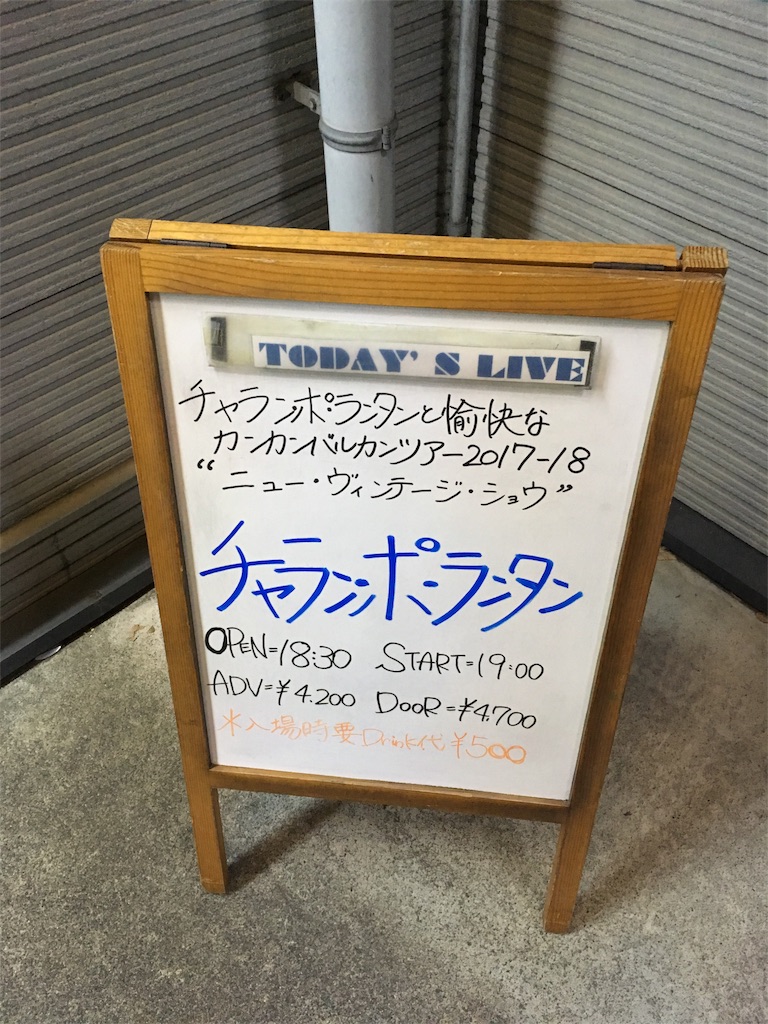 TODAY'S LIVE
チャラン・ポ・ランタンと愉快な
カンカンバルカンツアー2017-18
"ニュー・ヴィンテージ・ショウ"
チャラン・ポ・ランタン
OPEN=18:30 START=19:00
ADV=¥4.200 DOOR=¥4.700
※入場時要Drink代¥500